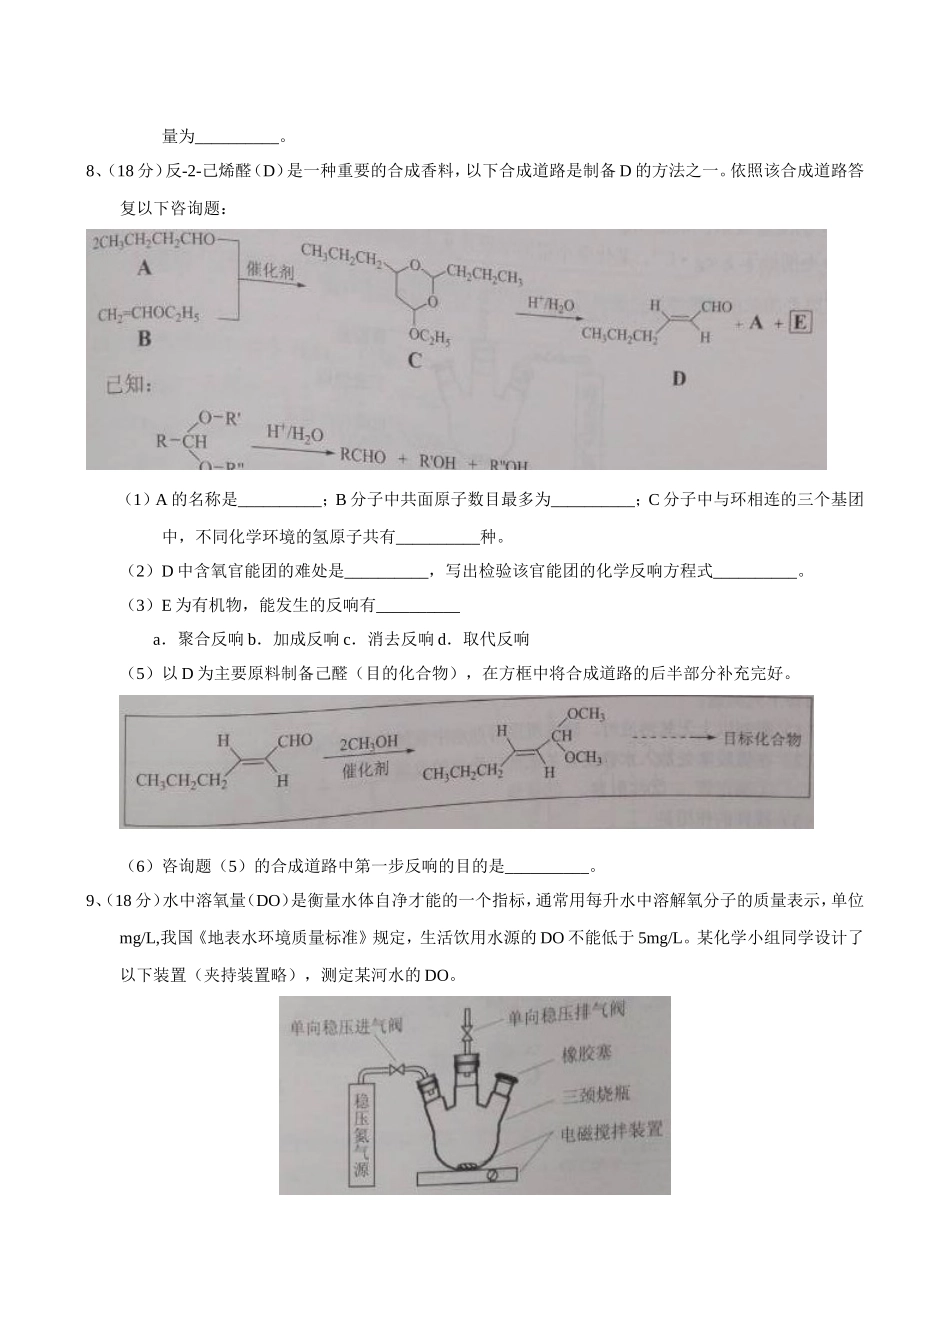 量为__________。
8、（18 分）反-2-己烯醛（D）是一种重要的合成香料，以下合成道路是制备 D 的方法之一。依照该合成道路答
复以下咨询题：
2CH₃CH₂CH₂CHO
A
CH₂=CHOC₂H₅
B
催化剂
CH₃CH₂CH₂
O
CH₂CH₂CH₃
O
OC₂H₅
C
H⁺/H₂O
H
CHO
CH₃CH₂CH₂
H
D
+ A + E
已知：
R－CH
O－R'
O－R"
H⁺/H₂O
RCHO + R'OH + R"OH
（1）A 的名称是__________；B 分子中共面原子数目最多为__________；C 分子中与环相连的三个基团
中，不同化学环境的氢原子共有__________种。
（2）D 中含氧官能团的难处是__________，写出检验该官能团的化学反响方程式__________。
（3）E 为有机物，能发生的反响有__________
a．聚合反响 b．加成反响 c．消去反响 d．取代反响
（5）以 D 为主要原料制备己醛（目的化合物），在方框中将合成道路的后半部分补充完好。
H
CHO
CH₃CH₂CH₂
H
2CH₃OH
催化剂
H
OCH₃
CH
OCH₃
CH₃CH₂CH₂
H
目标化合物
（6）咨询题（5）的合成道路中第一步反响的目的是__________。
9、（18 分）水中溶氧量（DO）是衡量水体自净才能的一个指标，通常用每升水中溶解氧分子的质量表示，单位
mg/L,我国《地表水环境质量标准》规定，生活饮用水源的 DO 不能低于 5mg/L。某化学小组同学设计了
以下装置（夹持装置略），测定某河水的 DO。
单向稳压进气阀
单向稳压排气阀
橡胶塞
三颈烧瓶
电磁搅拌装置
稳压氮气源